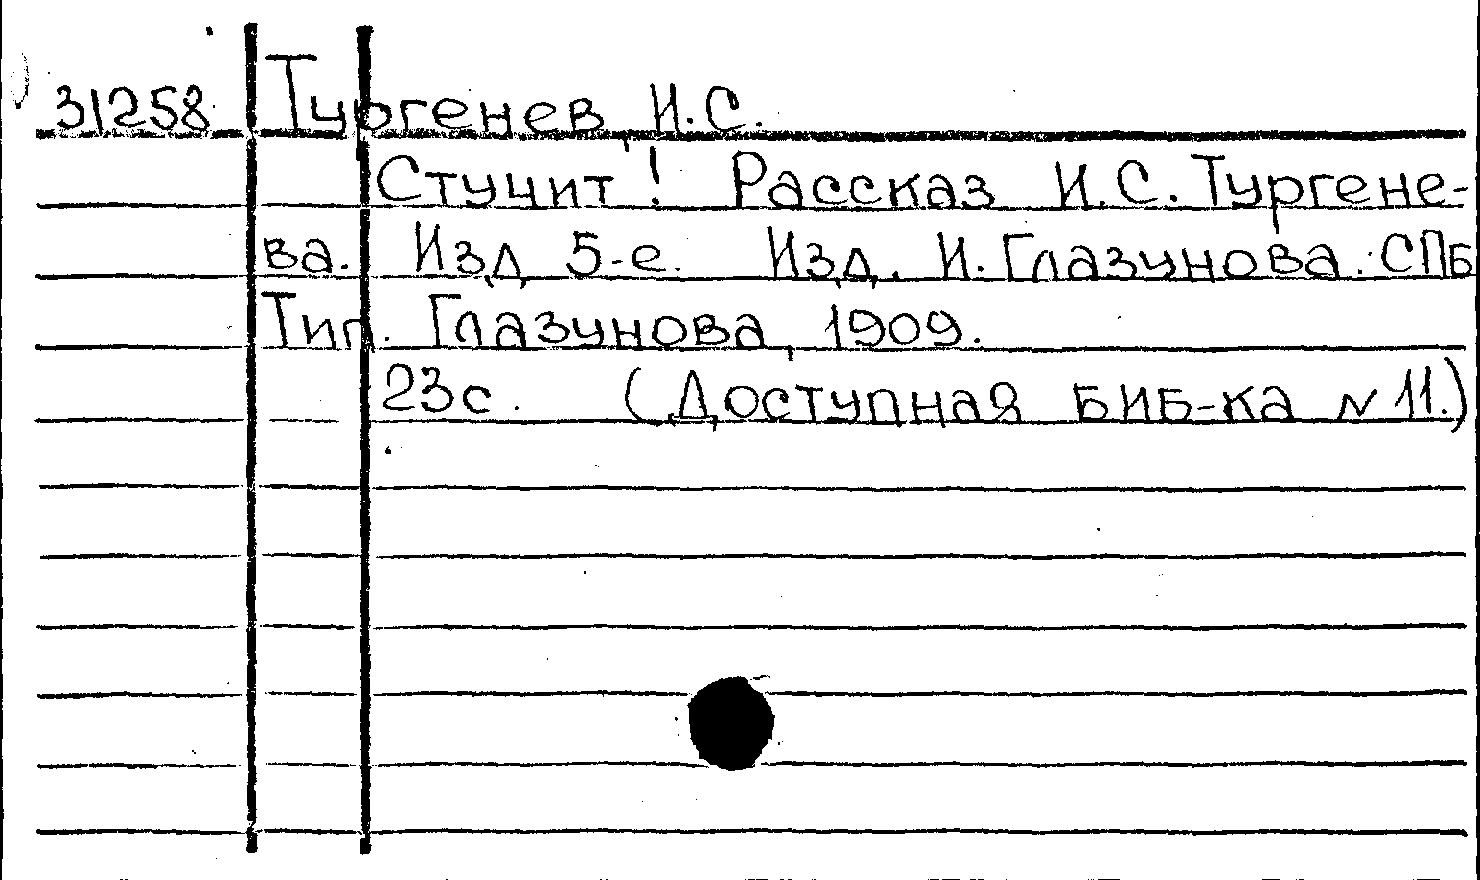 31258 Тургенев, И.С.
Стучит! Рассказ И.С. Тургене-
ва. Изд 5-е. Изд. И. Глазунова. СПБ
Тип. Глазунова, 1909.
23с. (Доступная БИБ-ка N 11.)